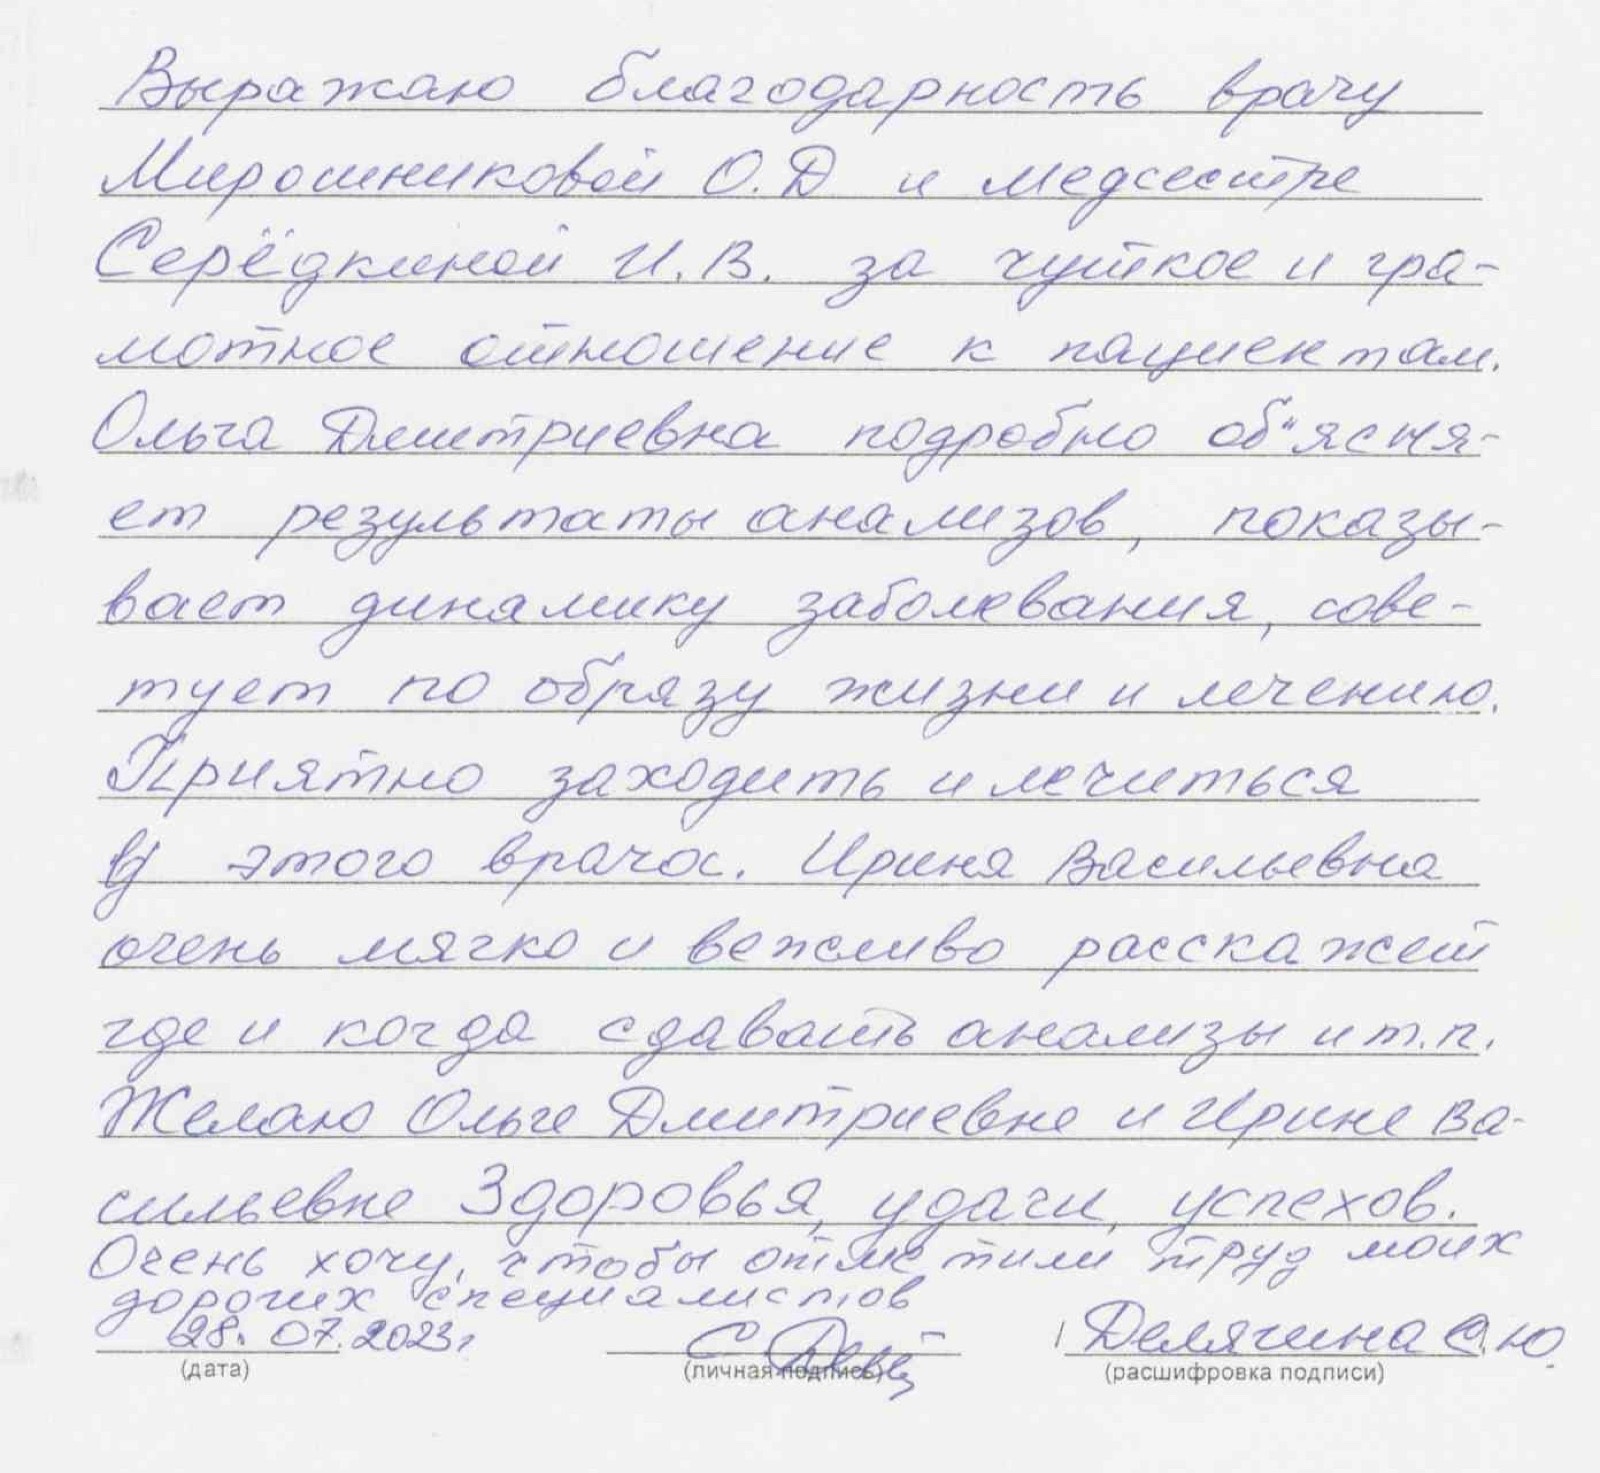 Выражаю благодарность врачу
Мирошниковой О.Д и медсестре
Серёдкиной И.В. за чуткое и гра-
мотное отношение к пациентам.
Ольга Дмитриевна подробно об"ясня-
ет результаты анализов, показы-
вает динамику заболевания, сове-
тует по образу жизни и лечению.
Приятно заходить и лечиться
у этого врача. Ирина Васильевна
очень мягко и вежливо расскажет
где и когда сдавать анализы и т.п.
Желаю Ольге Дмитриевне и Ирине Ва-
сильевне Здоровья, удачи, успехов.
Очень хочу, чтобы отметили труд моих
дорогих специалистов
28.07.2023г Делягина С.Ю.
(дата) (личная подпись) (расшифровка подписи)